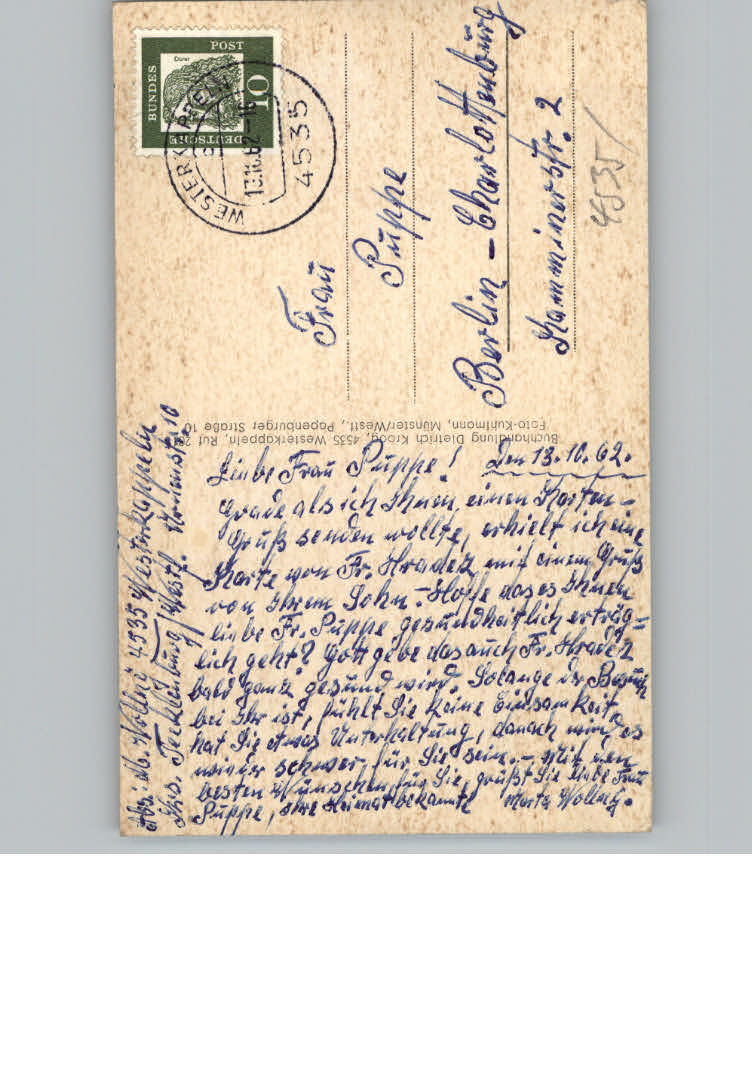 DEUTSCHE BUNDESPOST
Dürer
10
WESTERKAPPELN
13.10.62-16
4535
Frau
Puppe
Berlin - Charlottenburg
Kamminerstr. 2
4535/
Buchhandlung Dietrich Kroog, 4535 Westerkappeln, Ruf
Foto-Kuhlmann, Münster/Westf., Papenburger Straße 10
Abs: M. 4535 Westerkappeln
Krs. Tecklenburg/Westf.
Den 13.10.62.
Liebe Frau Puppe!
Grade als ich Ihnen einen Karten-
gruß senden wollte, erhielt ich eine
Karte von Fr. Hradetz mit einem Gruß
von Ihrem Sohn. Hoffe das es Ihnen
liebe Fr. Puppe gesundheitlich erträg=
lich geht? Gott gebe das auch Fr. Hradetz
bald ganz gesund wird. Solange der Besuch
bei Ihr ist, fühlt Sie keine Einsamkeit
hat Sie etwas Unterhaltung, danach wird es
wieder schwer für Sie sein. - Mit den
besten Wünschen für Sie, grüßt Sie liebe Frau
Puppe, Ihre Heimatbekannte